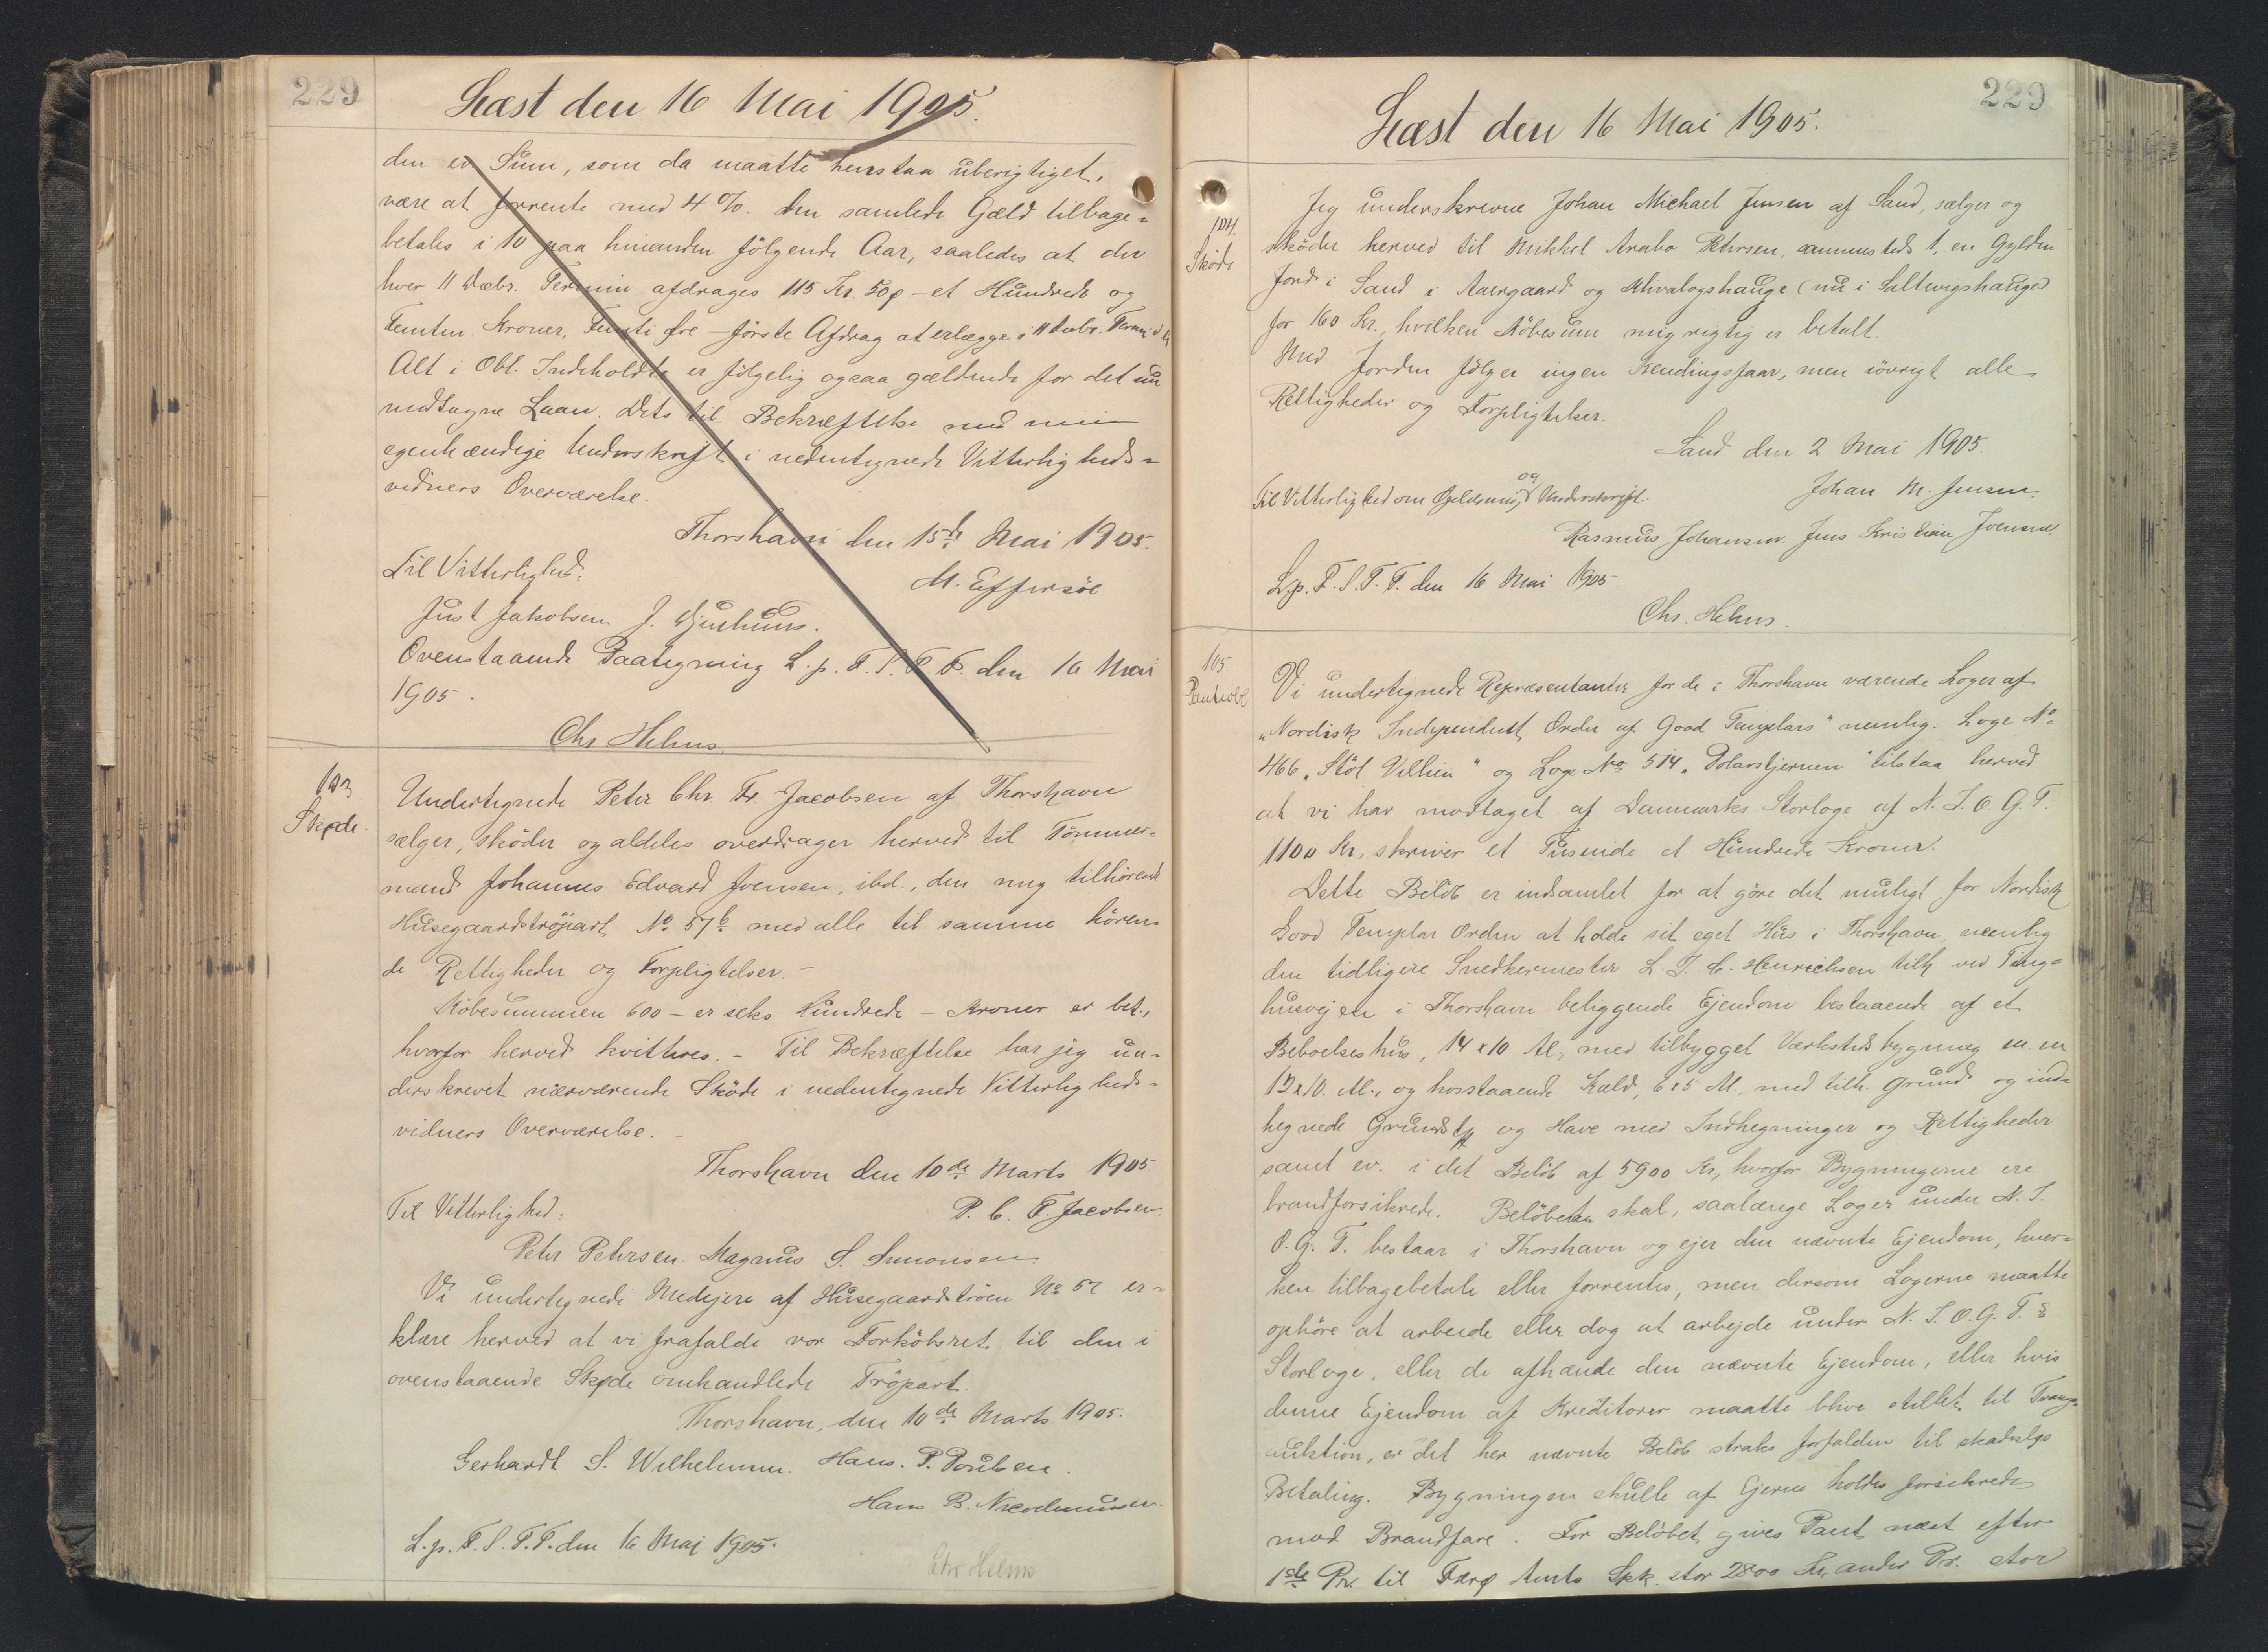 229
Læst den 16 Mai 1905.
den ev. Sum, som da maatte henstaa uberigtiget,
være at forrente med 4 %. Den samlede Gæld tilbage-
betales i 10 paa hinanden følgende Aar, saaledes at der
hver 11 Decbr. Termin afdrages 115 Kr. 50 ø – et Hundrede og
Femten Kroner, Femti Øre – første Afdrag at erlægge i 11 Decbr. Termin d. A.
Alt i Obl. Indeholdte er følgelig ogsaa gældende for det nu
modtagne Laan. Dets til Bekræftelse med min
egenhændige Underskrift i nedentegnede Vitterligheds-
vidners Overværelse.
Thorshavn den 15de Mai 1905.
Til Vitterlighed:
M. Effersöe
Just Jakobsen J. Djurhuus.
Ovenstaaende Paategning L. p. F. S. T. F. den 16 Mai
1905.
Chr Helms.
103
Skøde.
Undertegnede Peter Chr. Fr. Jacobsen af Thorshavn
sælger, skøder og aldeles overdrager herved til Tömmer-
mand Johannes Edvard Joensen, ibd., den mig tilhörende
Husegaardströpart No 57b med alle til samme hören-
de Rettigheder og Forpligtelser. –
Köbesummen 600 – er seks Hundrede – Kroner er bet.,
hvorfor herved kvitteres. – Til Bekræftelse har jeg un-
derskrevet nærværende Sköde i nedentegnede Vitterligheds-
vidners Overværelse. –
Thorshavn den 10de Marts 1905.
Til Vitterlighed:
P. C. F. Jacobsen.
Peter Petersen. Magnus S. Simonsen.
Vi undertegnede Medejere af Husegaardströen No 57 er-
klære herved at vi frafalde vor Forköbsret til den i
ovenstaaende Skøde omhandlede Tröpart.
Thorshavn, den 10de Marts 1905.
Gerhardt S. Wilhelmsen. Hans. P. Poulsen.
Hans B. Nicodemussen.
L. p. F. S. T. F. den 16 Maj 1905.
Chr Helms
229
Læst den 16 Mai 1905.
104.
Skøde
Jeg underskrevne Johan Michael Jensen af Sand, sælger og
sköder herved til Mikkel Arabo Petersen, sammesteds 1, en Gylden
Jord i Sand i Aaergaard og (nu i Saltvigshauge)
for 160 Kr., hvilken Köbesum mig rigtig er betalt.
Med Jorden fölger ingen Kendingsfaar, men iövrigt alle
Rettigheder og Forpligtelser.
Sand den 2 Mai 1905.
Til Vitterlighed om og Underskrift.
Johan M. Jensen.
Rasmus Johansen. Jens Kristian Joensen
L. p. F. S. T. F. den 16 Mai 1905
Chr. Helms.
105
Pantobl
Vi undertegnede Repræsentanter for de i Thorshavn værende Loger af
„Nordisk Independent Order af Good Templars" nemlig: Loge No
466 „Stöt Villien" og Loge No 514 „Polarstjernen" tilstaa herved
at vi har modtaget af Danmarks Storloge af N. I. O. G. T.
1100 Kr, skriver et Tusinde et Hundrede Kroner.
Dette Belöb er indsamlet for at göre det muligt for Nordisk
Good Templar Orden at holde sit eget Hus i Thorshavn, nemlig
den tidligere Snedkermester L. J. C. Henrichsen tilh. ved Ting-
husvejen i Thorshavn beliggende Ejendom bestaaende af et
Beboelseshus, 14 x 10 Al., med tilbygget Værkstedsbygning m. m
12 x 10. Al., og hosstaaende Kæld, 6 x 5 Al., med tilh. Grund og ind-
hegnede Grundst. og Have med Indhegninger og Rettigheder
samt ev. i det Belöb af 5900 Kr., hvorfor Bygningerne ere
brandforsikrede. Belöbet skal, saalænge Loger under N. I.
O. G. T. bestaar i Thorshavn og ejer den nævnte Ejendom, hver-
ken tilbagebetale eller forrentes, men dersom Logerne maatte
ophöre at arbeide eller dog at arbejde under N. I. O. G. T.s
Storloge, eller de afhænde den nævnte Ejendom, eller hvis
denne Ejendom af Kreditorer maatte blive stillet til Tvangs-
auktion, er det her nævnte Belöb straks forfalden til skadeslös
Betaling. Bygningen skulle af Ejerne holdes forsikrede
mod Brandfare. For Belöbet gives Pant næst efter
1ste Pr. til Færø Amts Spk. stor 2800 Kr, anden Pr. stor